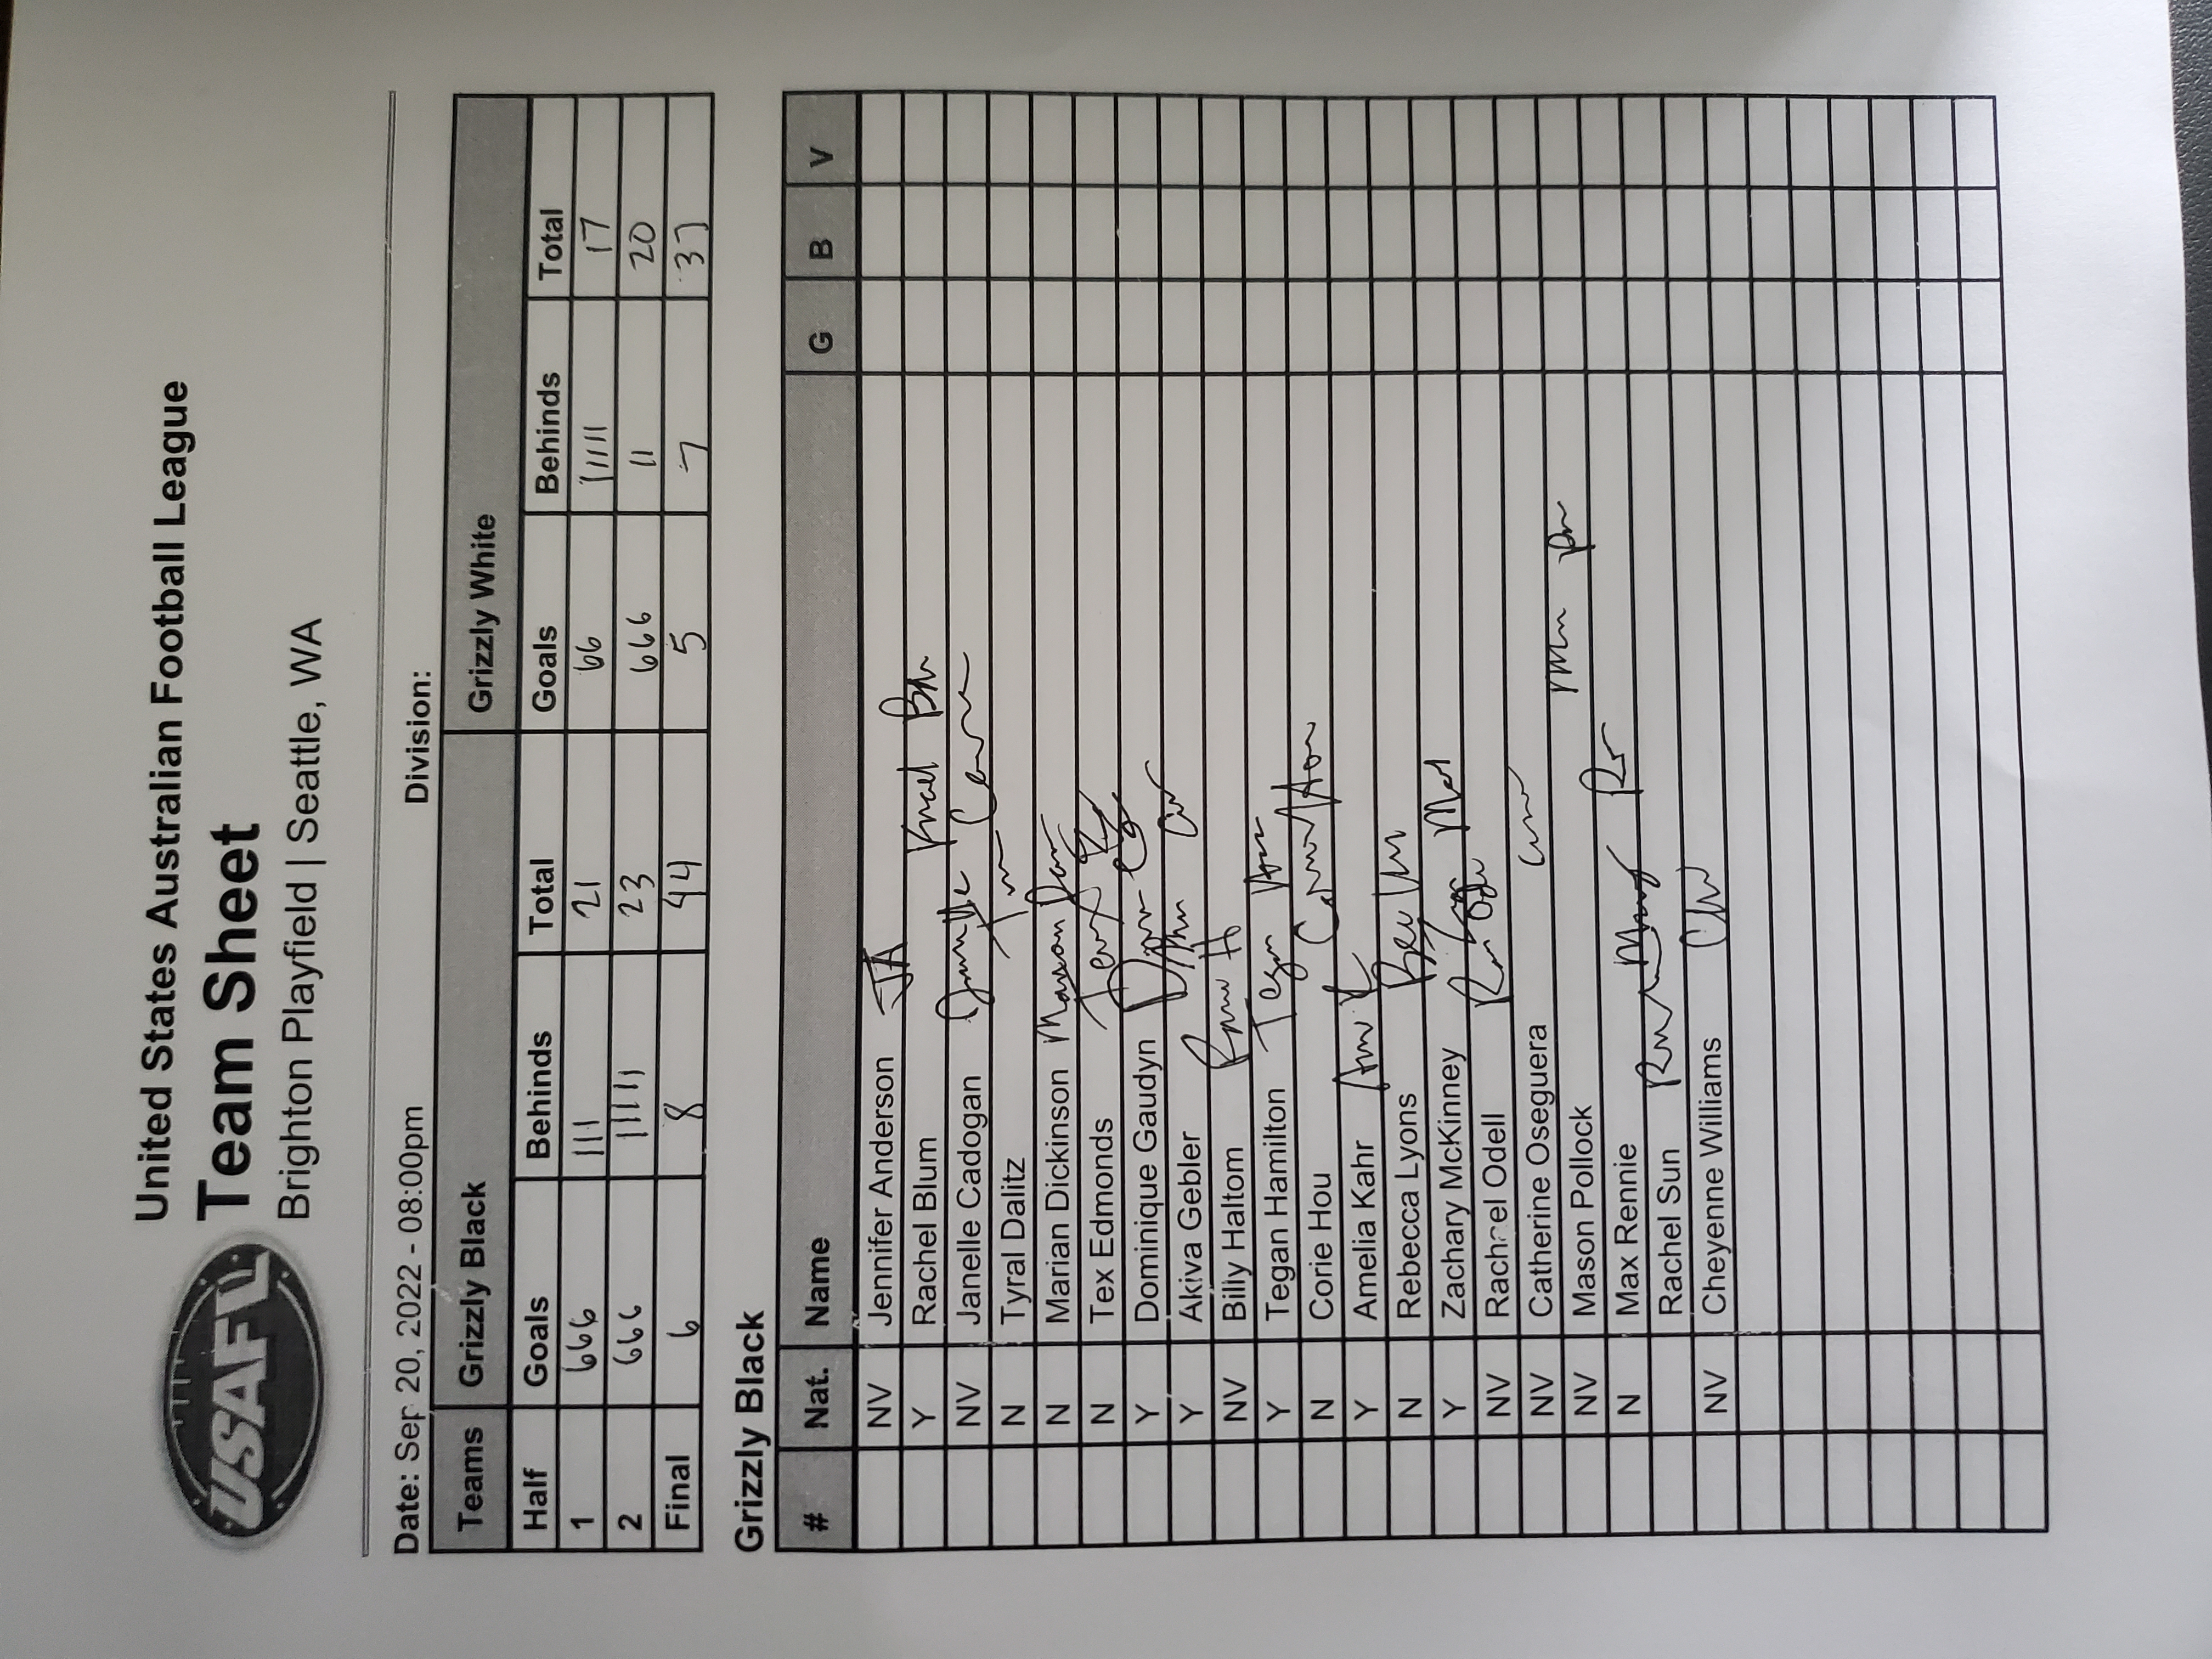 USAFL
United States Australian Football League
Team Sheet
Brighton Playfield | Seattle, WA
Date: Sep 20, 2022 - 08:00pm Division:
Teams Grizzly Black Grizzly White
Half Goals Behinds Total Goals Behinds Total
1 666 111 21 66 11111 17
2 666 11111 23 666 11 20
Final 6 8 44 5 7 37
Grizzly Black
# Nat. Name G B V
NV Jennifer Anderson JA
Y Rachel Blum
NV Janelle Cadogan
N Tyral Dalitz
N Marian Dickinson
N Tex Edmonds
Y Dominique Gaudyn
Y Akiva Gebler
NV Billy Haltom
Y Tegan Hamilton Tegan
N Corie Hou
Y Amelia Kahr
N Rebecca Lyons
Y Zachary McKinney
NV Rachel Odell
NV Catherine Oseguera
NV Mason Pollock
N Max Rennie
Rachel Sun
NV Cheyenne Williams